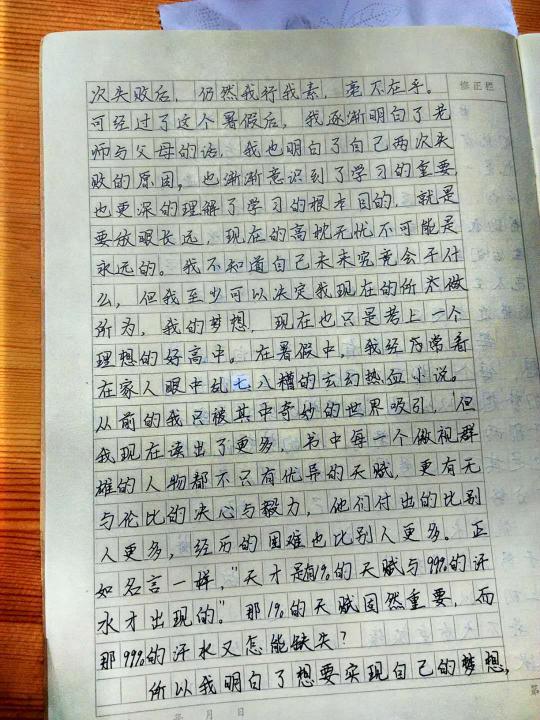 修正栏
次失败后，仍然我行我素，毫不在乎。
可经过了这个暑假后，我逐渐明白了老
师与父母的话，我也明白了自己两次失
败的原因，也渐渐意识到了学习的重要，
也更深的理解了学习的根本目的，就是
要放眼长远，现在的高枕无忧不可能是
永远的。我不知道自己未来究竟会干什
么，但我至少可以决定我现在的所作做
所为，我的梦想，现在也只是考上一个
理想的好高中。在暑假中，我经常看
在家人眼中乱七八糟的玄幻热血小说。
从前的我只被其中奇妙的世界吸引，但
我现在读出了更多，书中每一个傲视群
雄的人物都不只有优异的天赋，更有无
与伦比的决心与毅力，他们付出的比别
人更多，经历的困难也比别人更多。正
如名言一样，"天才是由1%的天赋与99%的汗
水才出现的。"那1%的天赋固然重要，而
那99%的汗水又怎能缺失？
所以我明白了想要实现自己的梦想，
年 月 日
第